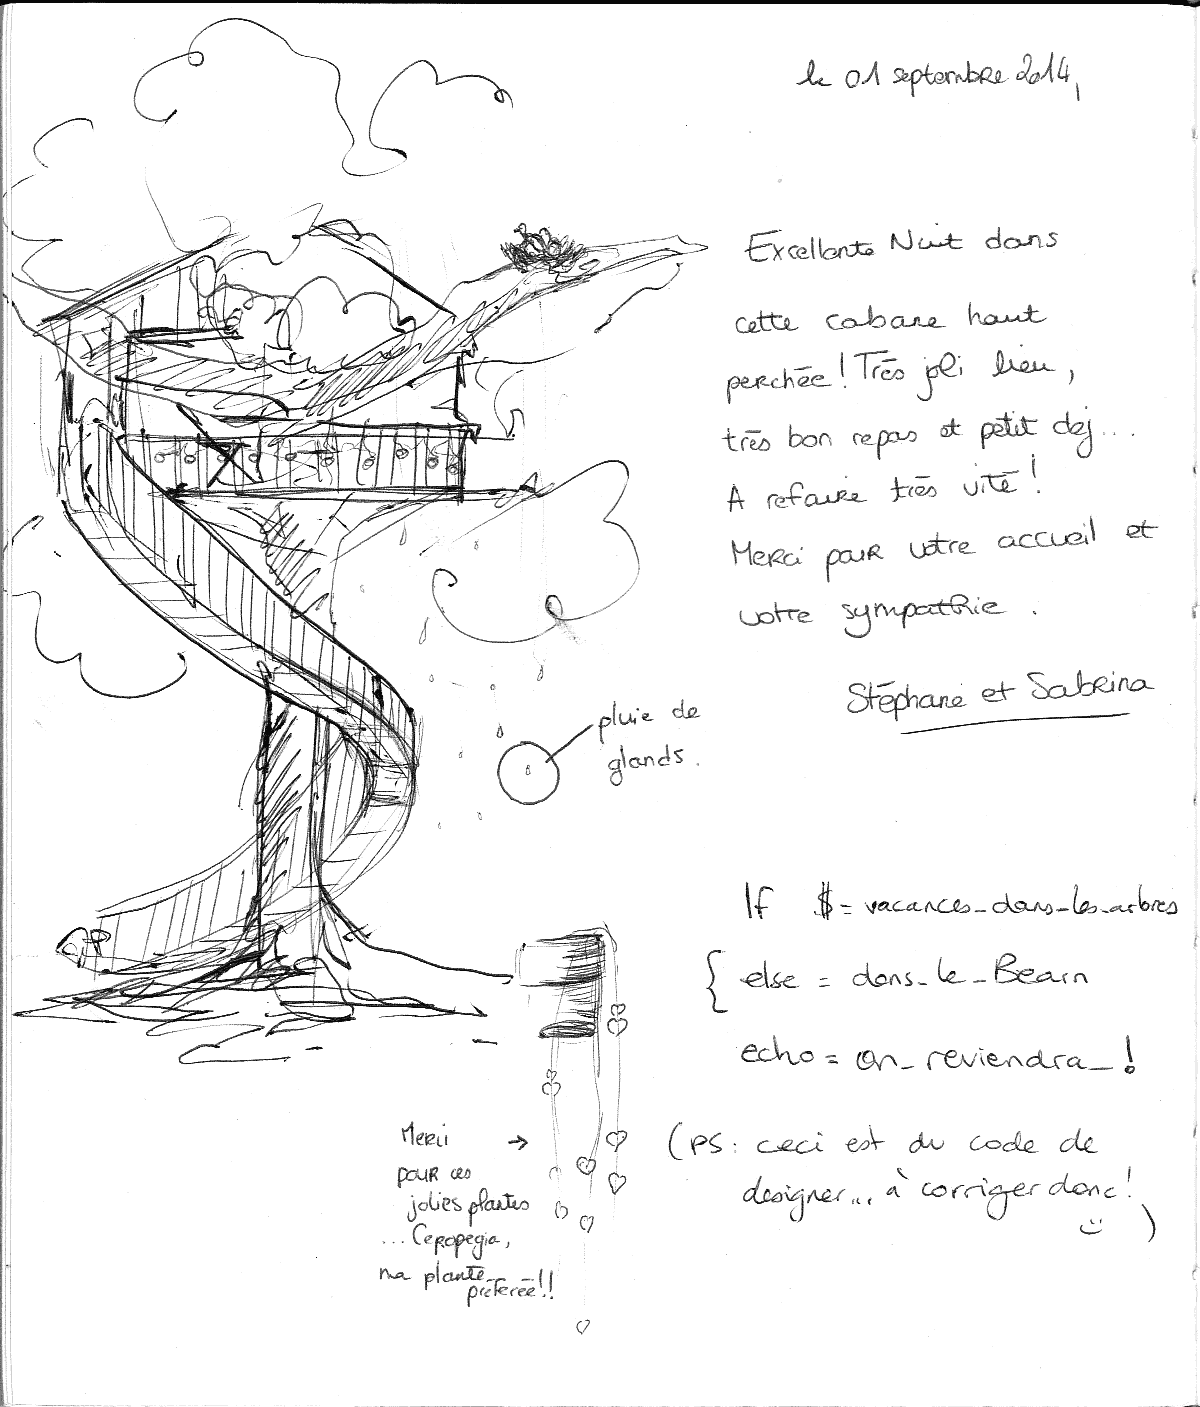 le 01 septembre 2014,
Excellente Nuit dans
cette cabane haut
perchée ! Très joli lieu,
très bon repas et petit dej...
A refaire très vite !
Merci pour votre accueil et
votre sympathie .
Stéphane et Sabrina
pluie de
glands.
If $= vacances_dans_les_arbres
{ else = dans_le_Bearn
echo = on_reviendra_!
(PS : ceci est du code de
designer... à corriger donc !
:)
)
Merci →
pour ces
jolies plantes
... Ceropegia,
ma plante
préférée !!